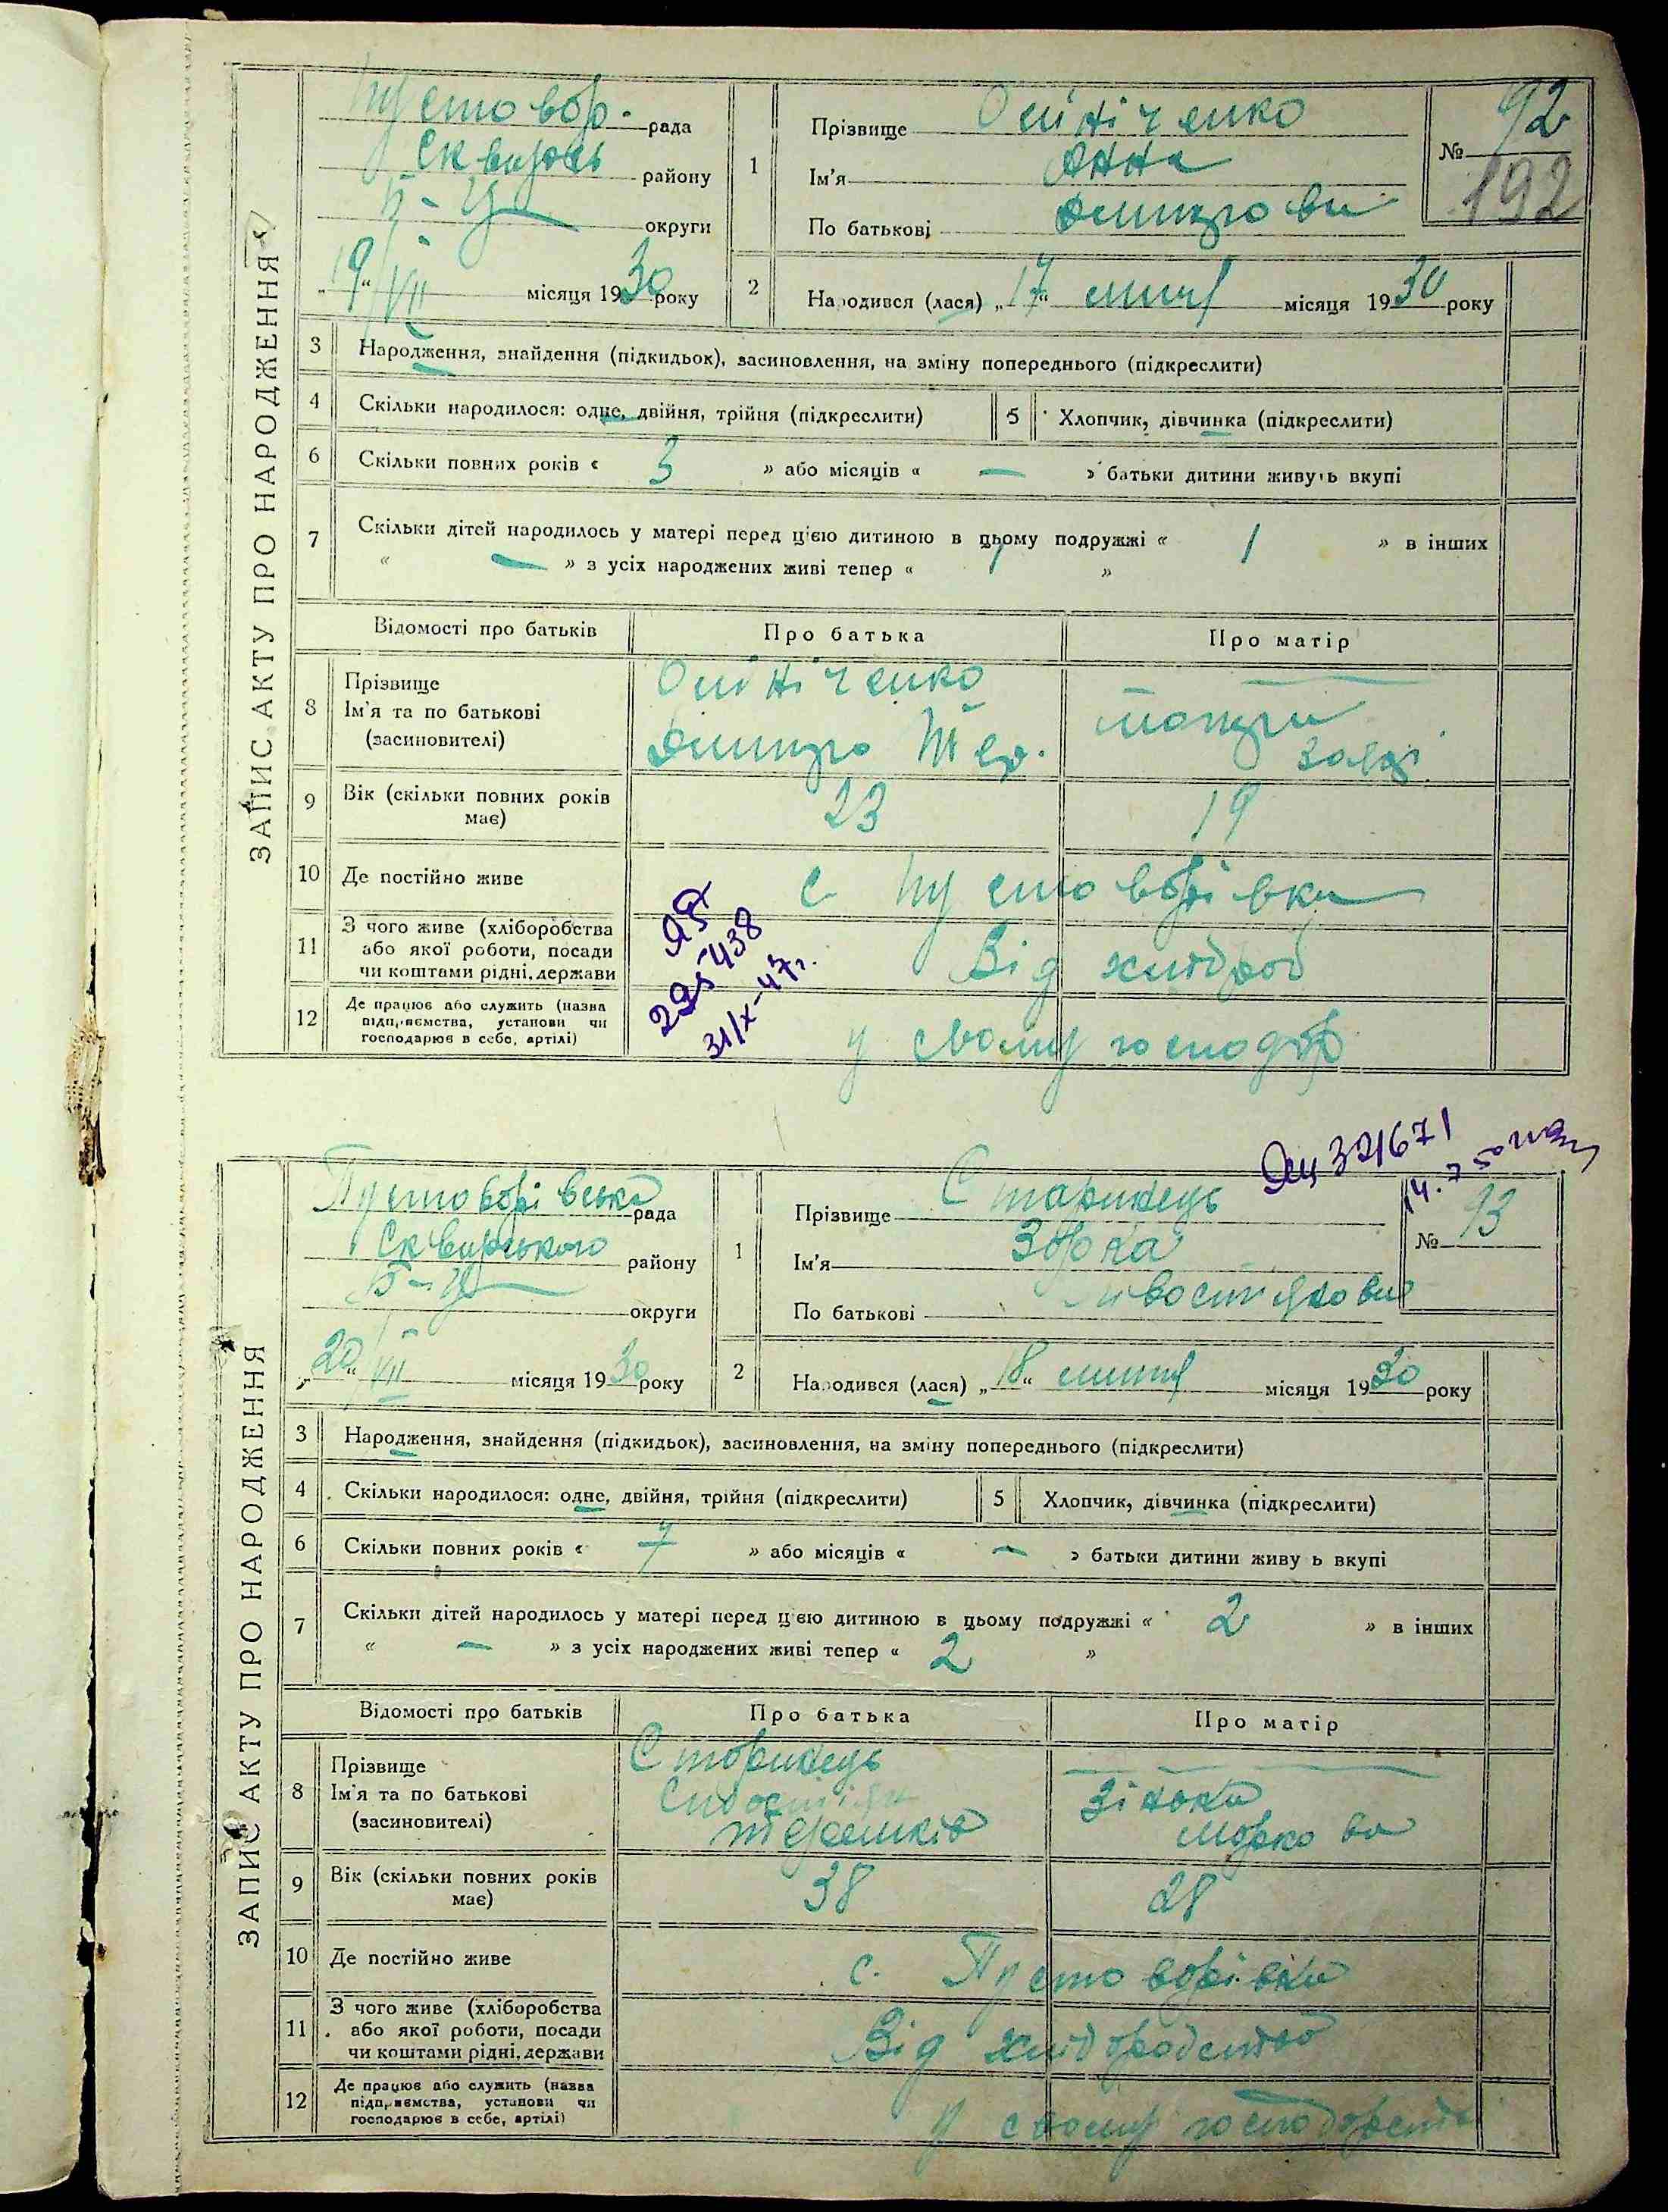 ЗАПИС АКТУ ПРО НАРОДЖЕННЯ
Пустовор. рада
Сквирськ району
Б-Ц округи
„19“ VII місяця 1930 року
1
Прізвище
Ім'я Анна
По батькові Дмитрови
№ 92
192
2
Народився (лася) „17“ липня місяця 1930 року
3 Народження, знайдення (підкидьок), засиновлення, на зміну попереднього (підкреслити)
4 Скільки народилося: одне, двійня, трійня (підкреслити)
5 Хлопчик, дівчинка (підкреслити)
6 Скільки повних років « 3 » або місяців « — » батьки дитини живуть вкупі
7 Скільки дітей народилось у матері перед цією дитиною в цьому подружжі « 1 » в інших
« — » з усіх народжених живі тепер « 1 »
Відомості про батьків Про батька Про матір
8 Прізвище
Ім'я та по батькові
(засиновителі)
Дмитро
9 Вік (скільки повних років має)
23 19
10 Де постійно живе
с Пустоворівка
11 З чого живе (хліборобства
або якої роботи, посади
чи коштами рідні, держави
Від хліброб
12 Де працює або служить (назва
підприємства, установи чи
господарює в себе, артілі)
у свому господар
295438
31/X-47г.
ЗАПИС АКТУ ПРО НАРОДЖЕННЯ
321671
Пустоворівська рада
Сквирського району
Б-Ц округи
„20“ VII місяця 1930 року
1
Прізвище Старикець
Ім'я
По батькові
№ 93
2
Народився (лася) „18“ липня місяця 1930 року
3 Народження, знайдення (підкидьок), засиновлення, на зміну попереднього (підкреслити)
4 Скільки народилося: одне, двійня, трійня (підкреслити)
5 Хлопчик, дівчинка (підкреслити)
6 Скільки повних років « 7 » або місяців « — » батьки дитини живу ь вкупі
7 Скільки дітей народилось у матері перед цією дитиною в цьому подружжі « 2 » в інших
« — » з усіх народжених живі тепер « 2 »
Відомості про батьків Про батька Про матір
8 Прізвище
Ім'я та по батькові
(засиновителі)
Старикець
Зінька
Маркова
9 Вік (скільки повних років має)
38 28
10 Де постійно живе
с. Пустоворівка
11 З чого живе (хліборобства
або якої роботи, посади
чи коштами рідні, держави
Від хліборобства
12 Де працює або служить (назва
підприємства, установи чи
господарює в себе, артілі)
у свому господарстві